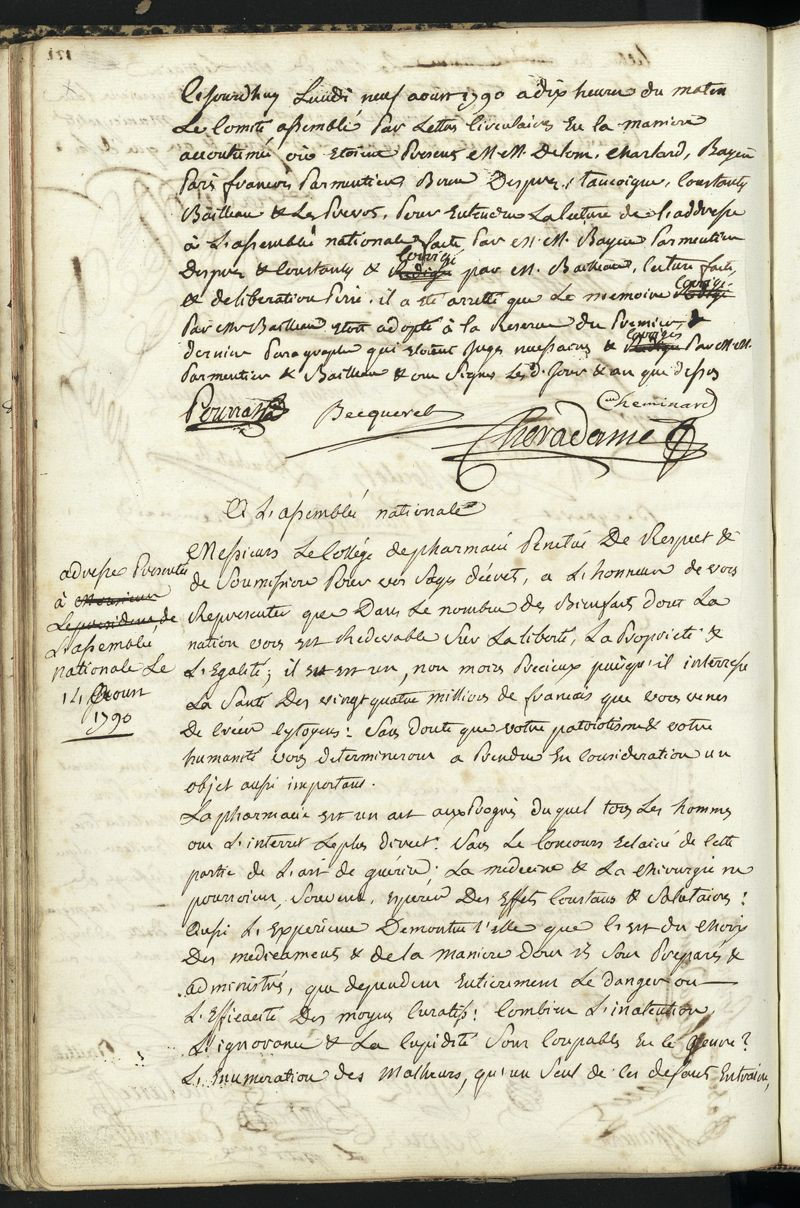 Cejourdhuy Lundi neuf aoust 1790 a dix heures du matin
Le Comité assemblé Par Lettres Circulaires En la maniere
accoutumée où Etoient Presens MM. Delon, Charlard, Bayen
Paris francois Parmentier, Desprez, Tancoigne, Coustanty
Bailleau & Le Prevos, Pour Entendre La Lecture de L'addresse
à L'assemblée nationale faite Par M.M. Bayen Parmentier
corrigé
Desprez & Coustanty & Redigé par M. Bailleau, Lecture faite,
corrigé
& deliberation Prise, il a été arretté que Le memoire Redigé
Par Mr Bailleau seroit adopté à la Reserve du Premier, &
corrigés
dernier Paragraphe qui etoient Juges necessaires & Redigés Par M.M.
Parmentier & Bailleau & ont Signés Les d. Jour & an que dessus
Becquerel Cheminard
Cheradame
A L'assemblée nationale
adresse Presentée
à Monsieur
Le president de
L'assemblée
nationale Le
14 Aoust
1790
Messieurs Le Collége de pharmacie Penetré De Respect &
de Soumission Pour vos Sages decrets, a L'honneur de vous
Representer que Dans Le nombre des Bienfaits dont La
nation vous est Redevable Sur La liberté, La Propriété &
L'Egalité; il en est un, non moins Precieux puisqu'il interresse
La Santé Des vingt quatre millions de francais que vous venes
De Créer Cytoyens: Sans doute que votre patriotisme & votre
humanité vous determineront a Prendre En Consideration un
objet aussi important.
La pharmacie est un art aux Progrès duquel tous Les hommes
ont L'interret Le plus direct: Sans Le Concours Eclairé de Cette
partie de L'art de guérir; La medecine & La Chirurgie ne
pourroient, Souvent, esperer Des Effets Constans & Salutaires:
aussi L'Experience Demontre t'elle que C'est du Choix
Des medicaments & de la maniere dont ils Sont Preparés &
administrés, que dependent Entierement Le danger ou
L'Efficacité Des moyens Curatifs: Combien L'inatention,
L'ignorance & La Cupidité Sont Coupables En Ce Genre?
L'Enumeration des Malheurs, qu'un Seul de Ces defauts Entraine,